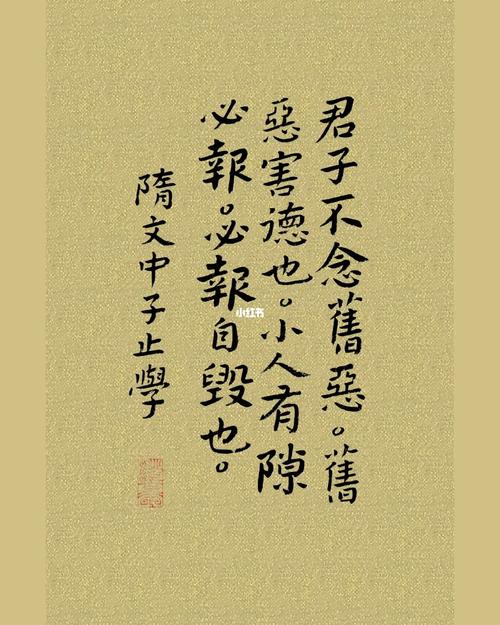 君子不念舊惡。舊
惡害德也。小人有隙
必報。必報自毀也。
隋文中子止學
小红书